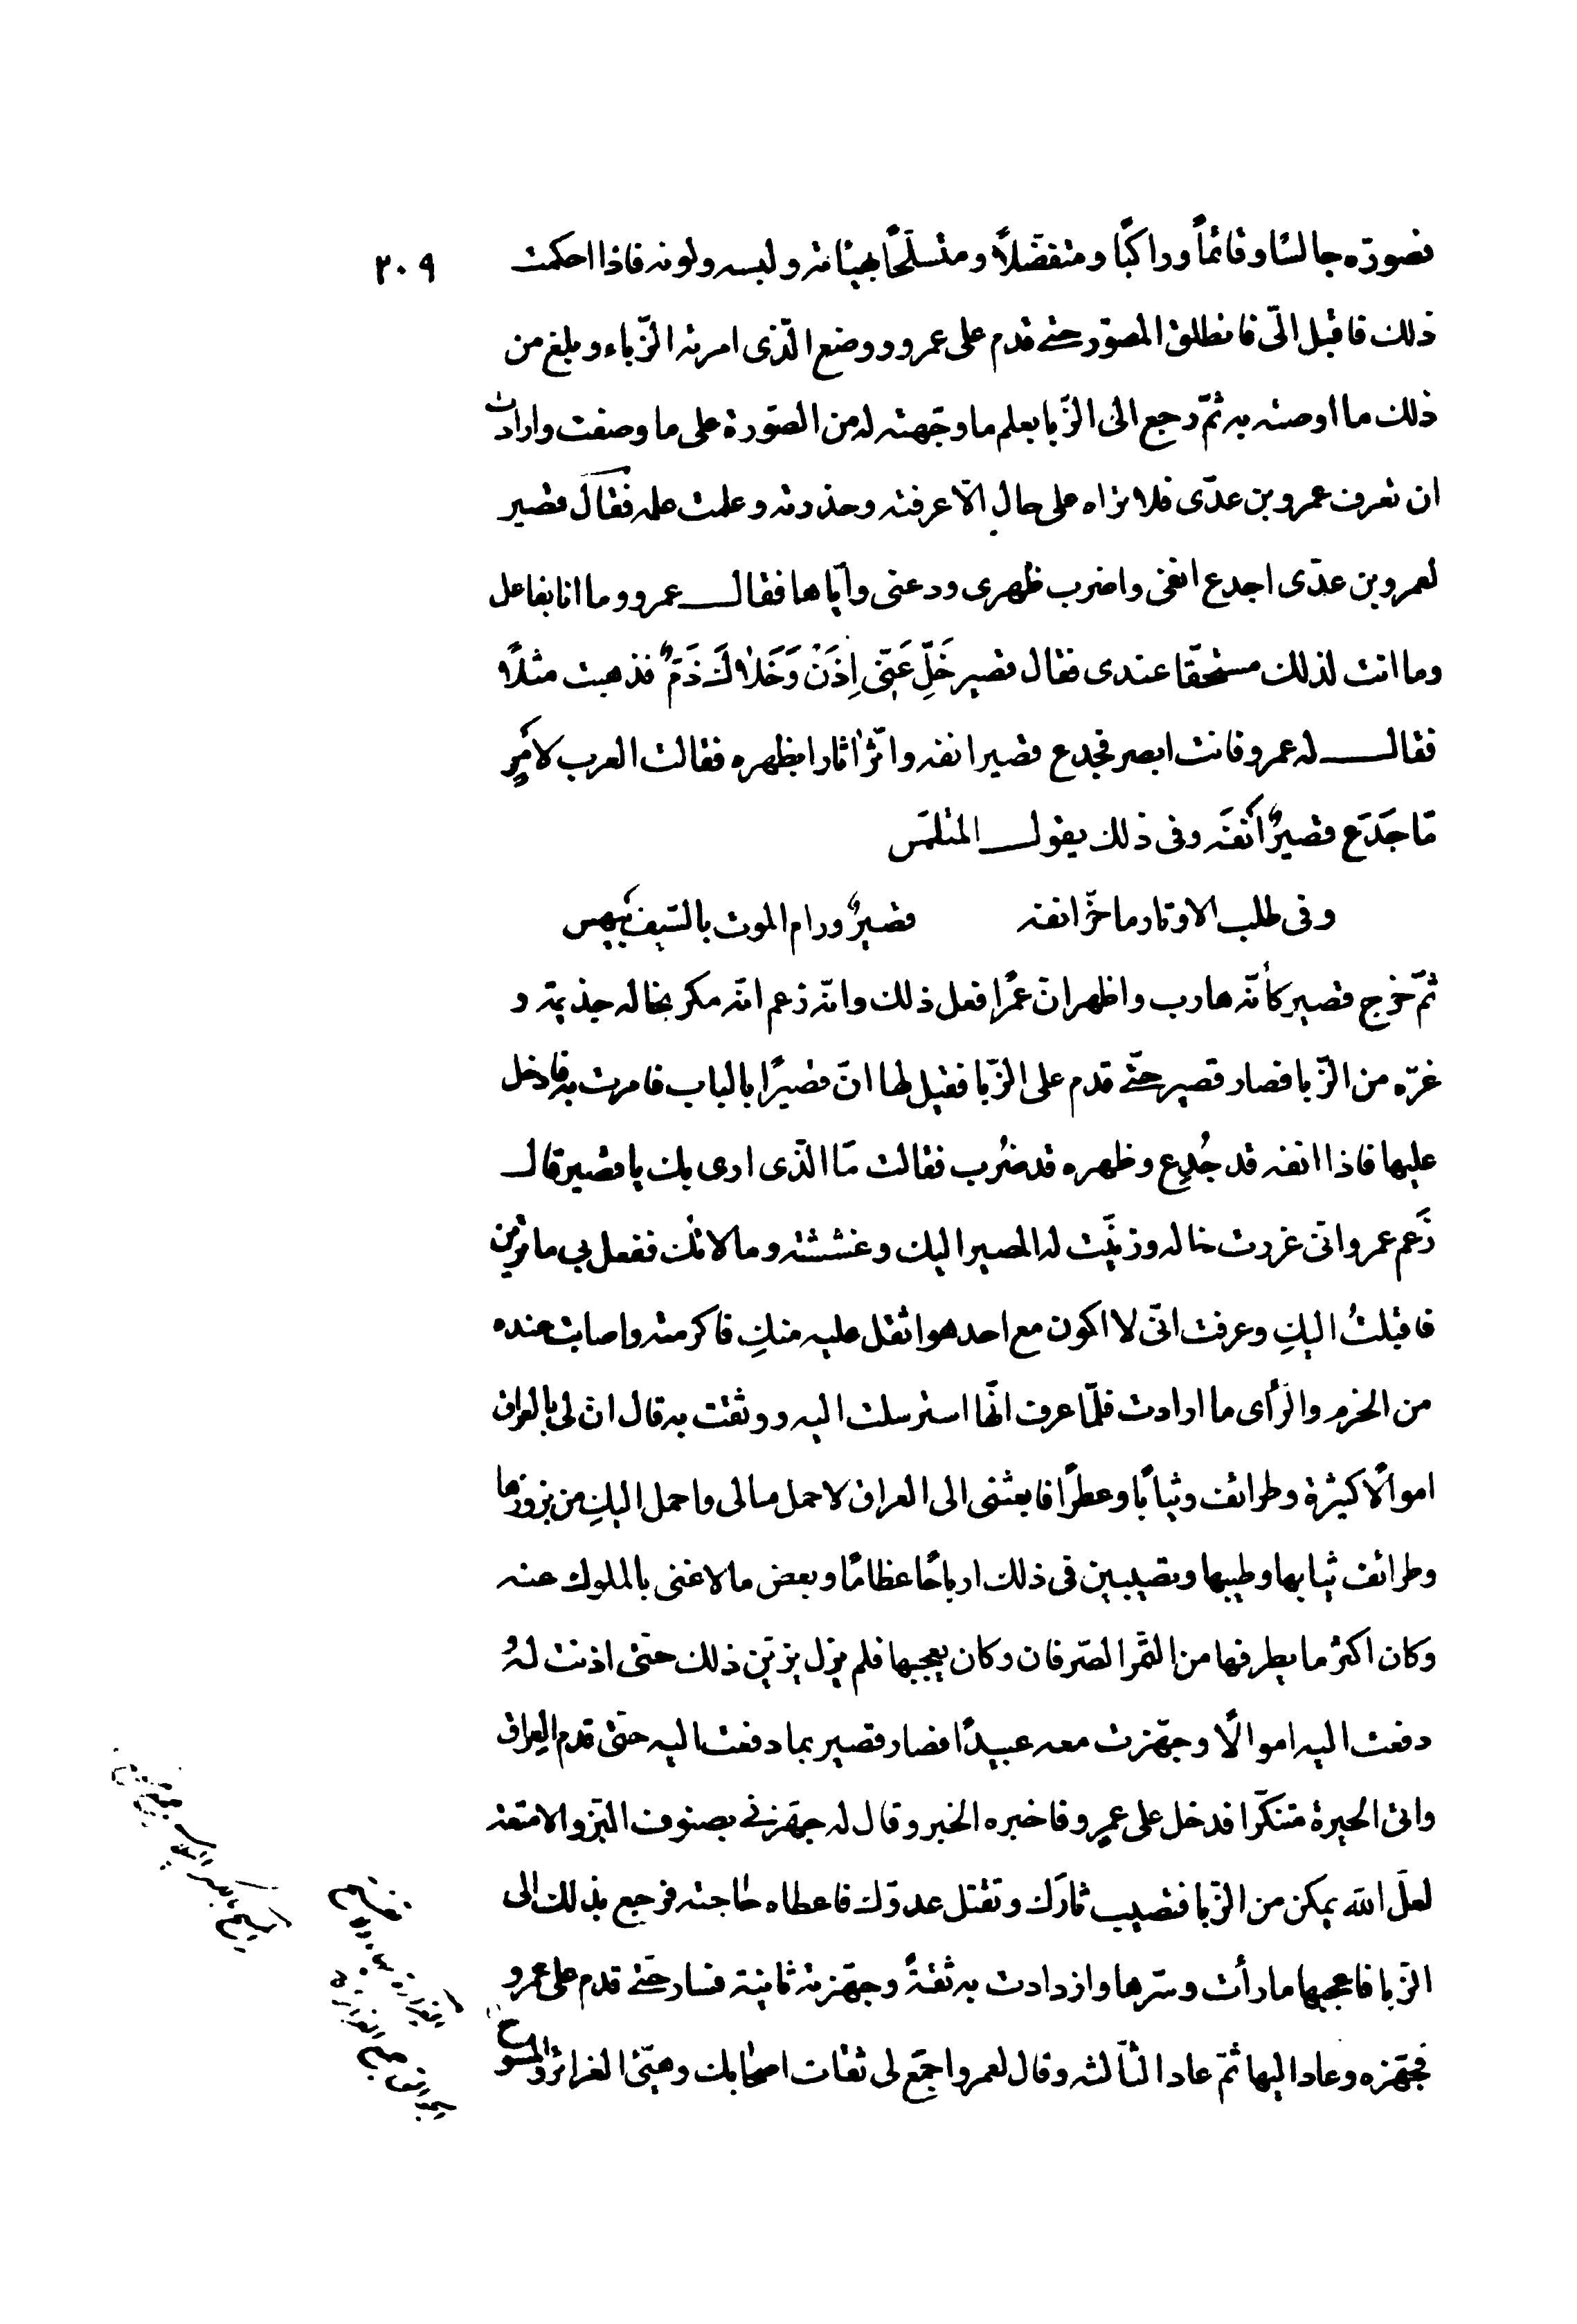 ٢٠٩
تصوّره جالسًا وقائمًا وراكبًا ومتفضّلًا ومتسلّحًا بهيئاته ولبسه ولونه فاذا احكمت
ذلك فاقبل الىّ فانطلق المصوّر حتى قدم على عمرو ووضع الّذى امرته الزّباء وبلغ من
ذلك ما اوصته به ثمّ رجع الى الزّبا بعلم ما وجّهته له من الصّورة على ما وصفت وارادت
ان تعرف عمرو بن عدّى فلا تراه على حال الّا عرفته وحذرته وعلمت علمه فقال قصير
لعمرو بن عدّى اجدع انفى واضرب ظهرى ودعنى وايّاها فقال عمرو وما انا بفاعل
وما انت لذلك مستحقّا عندى فقال قصير خَلِّ عَنّى اِذَنْ وَخَلاكَ ذَمٌ فذهبت مثلًا
فقال له عمرو فانت ابصر فجدع قصير انفه واثّر اثارا بظهره فقالت العرب لامرٍ
مَا جَدَع قصيرٌ اَنفَه وفى ذلك يقول المتلمّس
وفى طلب الاوتار ما حزّ انفه قصيرٌ ورام الموت بالسّيف بَيهس
ثمّ خرج قصير كأنّه هارب واظهر انّ عمرًا فعل ذلك وانّه زعم انّه مكر بخاله جذيمة و
غرّه من الزّبا فصار قصير حتّى قدم على الزّبا فقيل لها انّ قصيرًا بالباب فامرت به فادخل
عليها فاذا انفه قد جُدِع وظهره قد ضُرب فقالت مّا الّذى ارى بك يا قصير قال
زَعم عمرو انّى غررت خاله وزيّنت له المصير اليك وغششته ومالاتك ففعل بى ما ترين
فاقبلتُ اليكِ وعرفت انّى لا اكون مع احد هو اثقل عليه منكِ فاكرمته واصابت عنده
من الحزم والرّأى ما ارادت فلمّا عرف انّها استرسلت اليه ووثقت به قال ان لى بالعراق
اموالًا كثيرة وطرائف وثيابًا وعطرًا فابعثنى الى العراق لاحمل مالى واحمل اليكِ من بزوزها
وطرائف ثيابها وطيبها وتصيبين فى ذلك ارباحًا عظامًا وبعض ما لا غنى بالملوك عنه
وكان اكثر ما يطرفها من التّمر الصّرفان وكان يعجبها فلم يزل يزيّن ذلك حتى اذنت لهُ و
دفعت اليه اموالًا وجهّزت معه عبيدًا فصار قصير بما دفعت اليه حتى قدم العراق
واتى الحيرة متنكّرا فدخل على عمرٍو فاخبره الخبر وقال له جهّزنى بصنوف البَزّ والامتعة
لعلّ اللّه يمكن من الزّبا فتصيب ثارك وتقتل عدوّك فاعطاه حاجته فرجع بذلك الى
الزّبا فاعجبها ما رأت وسرّها وازدادت به ثقةً وجهّزته ثانية فسار حتى قدم على عمرو
فجهّزه وعاد اليها ثمّ عاد الثّالثة وقال لعمرو اجمع لى ثقات اصحابك وهيّئ الغرائر والمسوح